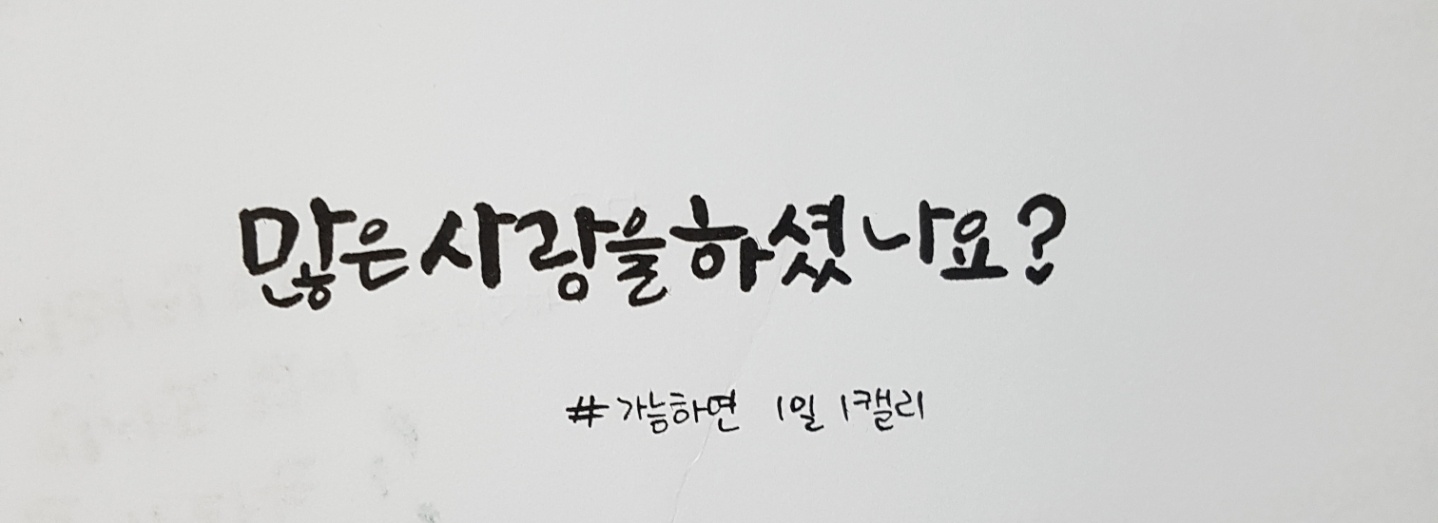 많은 사랑을 하셨나요?
#가능하면 1일 1캘리